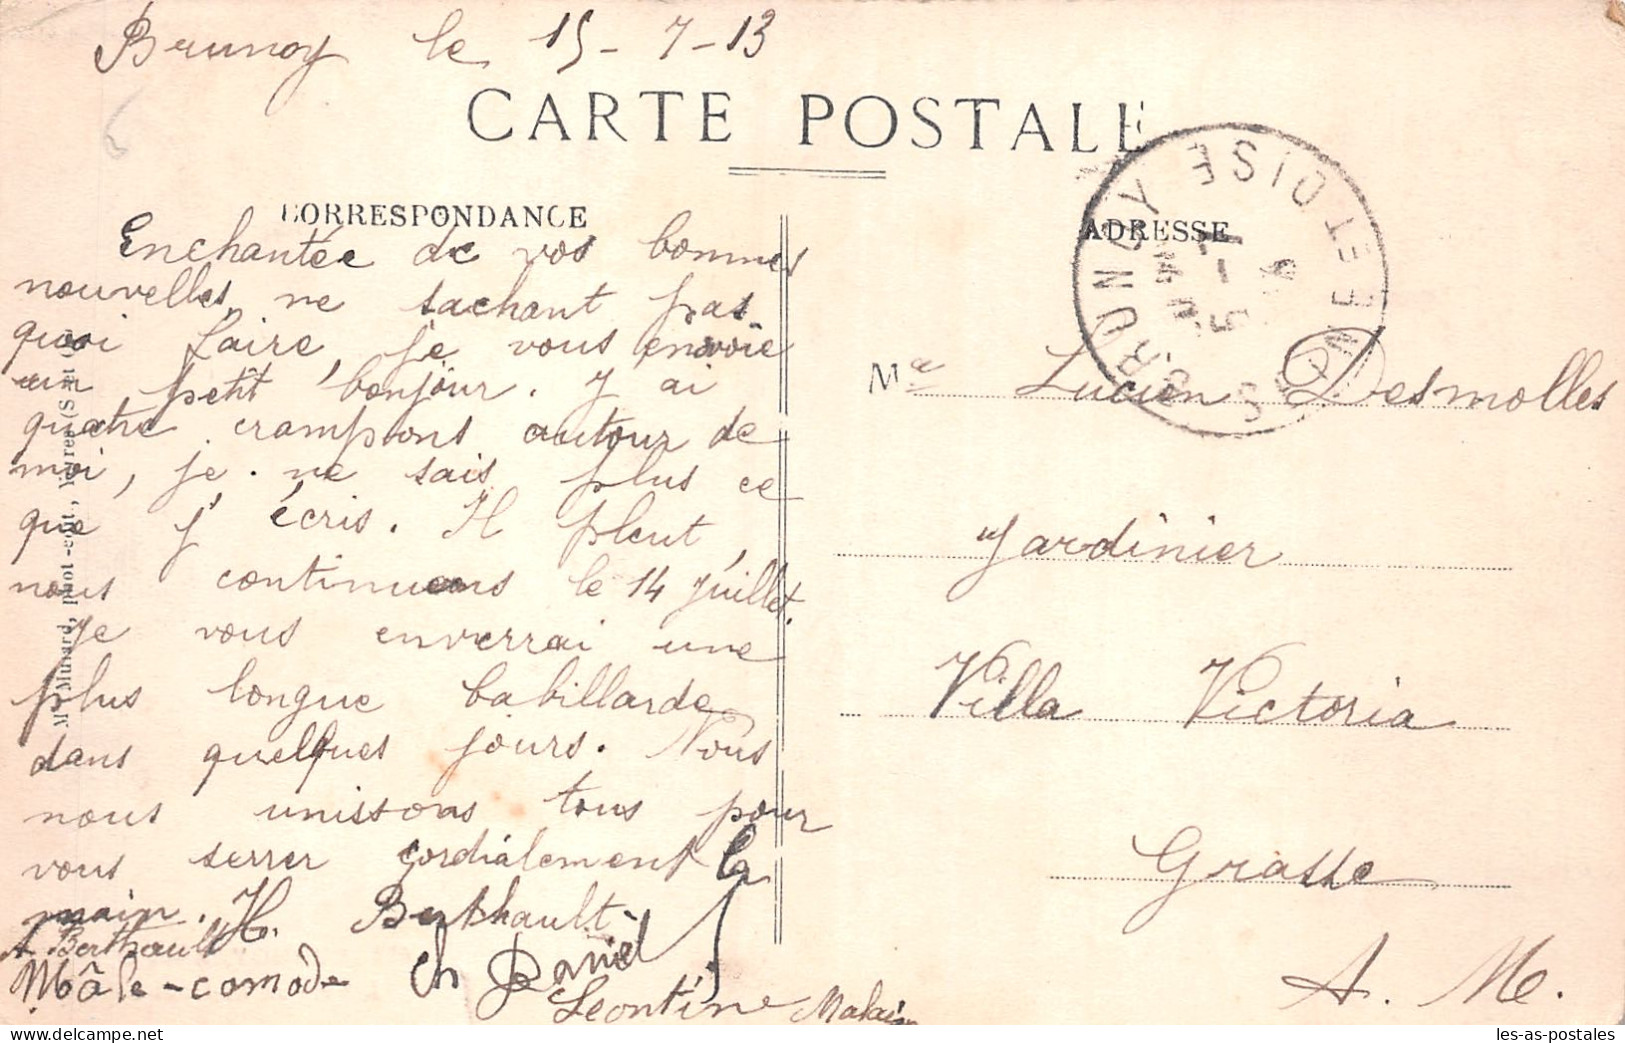 Brunoy le 15-7-13
CARTE POSTALE
CORRESPONDANCE
ADRESSE
BRUNOY SEINE ET OISE
Enchantée de vos bonnes
nouvelles, ne sachant pas
quoi faire, je vous envoie
un petit bonjour. J'ai
quatre crampons autour de
moi, je ne sais plus ce
que j'écris. Il pleut,
nous continuons le 14 Juillet.
Je vous enverrai une
plus longue babillarde
dans quelques jours. Nous
nous unissons tous pour
vous serrer cordialement la
main. H. Berthault
A. Berthault
Mâle-comode Ch Daniel
Leontine
Me Lucien Desmolles
Jardinier
Villa Victoria
Grasse
A. M.
les-as-postales